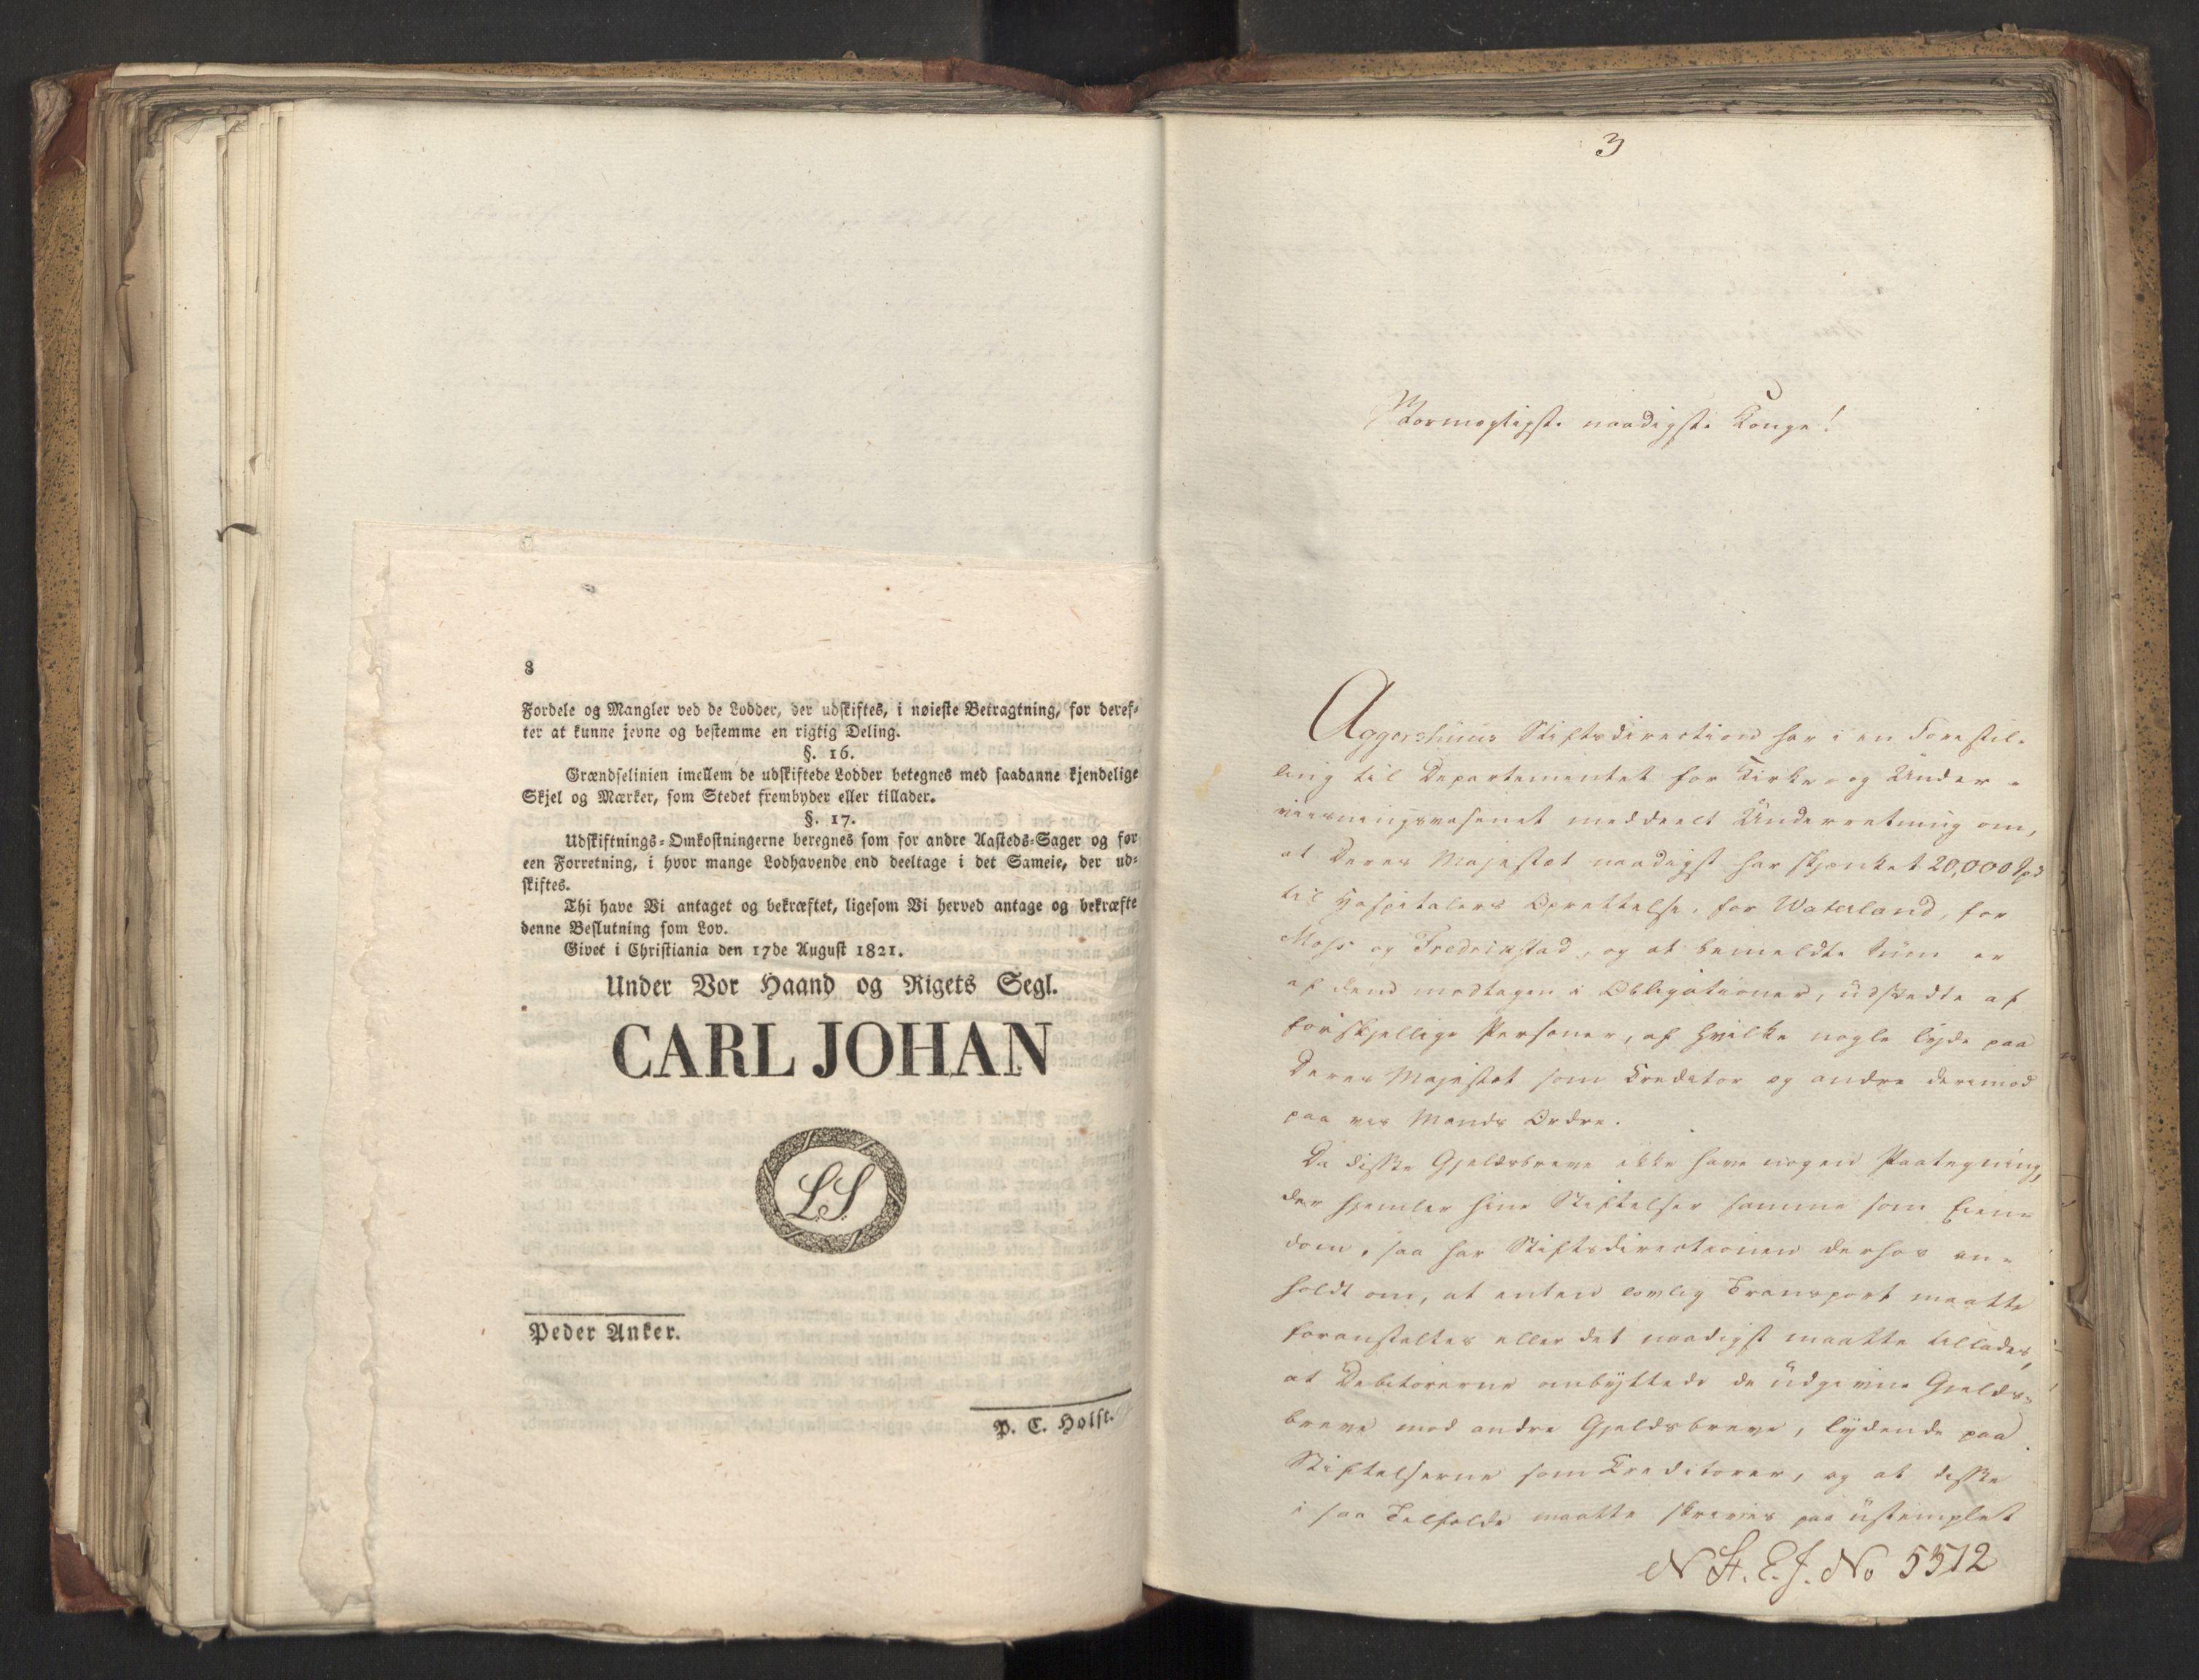 8
Fordele og Mangler ved de Lodder, der udskiftes, i nøieste Betragtning, for deref-
ter at kunne jevne og bestemme en rigtig Deling.
§. 16.
Grændselinien imellem de udskiftede Lodder betegnes med saadanne kjendelige
Skjel og Mærker, som Stedet frembyder eller tillader.
§. 17.
Udskiftnings-Omkostningerne beregnes som for andre Aasteds-Sager og for
een Forretning, i hvor mange Lodhavende end deeltage i det Sameie, der ud-
skiftes.
Thi have Vi antaget og bekræftet, ligesom Vi herved antage og bekræfte
denne Beslutning som Lov.
Givet i Christiania den 17de August 1821.
Under Vor Haand og Rigets Segl.
CARL JOHAN
L.S.
Peder Anker.
P. C. Holst.
3
Stormægtigste naadigste Konge!
Aggershuus Stiftsdirection har i en Forestil-
ling til Departementet for Kirke- og Under-
viisningsvæsenet meddeelt Underretning om,
at Deres Majestæt naadigst har skjænket 20,000 Spd
til Hospitalers Oprettelse, for Waterland, for
Moss og Fredrikstad, og at bemeldte Sum er
af dend modtagen i Obligationer, udstædte af
forskjellige Personer, af hvilke nogle lyde paa
Deres Majestæt som Creditor og andre derimod
paa vis Mands Ordre.
Da disse Gjeldsbreve ikke have nogen Paategning,
der hjemler hine Stiftelser samme som Eien-
dom, saa har Stiftsdirectionen derhos an-
holdt om, at enten lovlig Transport maatte
foranstaltes eller det naadigst maatte tillades,
at Debitorerne ombyttede de udgivne Gjelds-
breve mod andre Gjeldsbreve, lydende paa
Stiftelserne som Creditorer, og at disse
i saa Tilfælde maatte skrives paa ustemplet
N St. E. J. No 5512